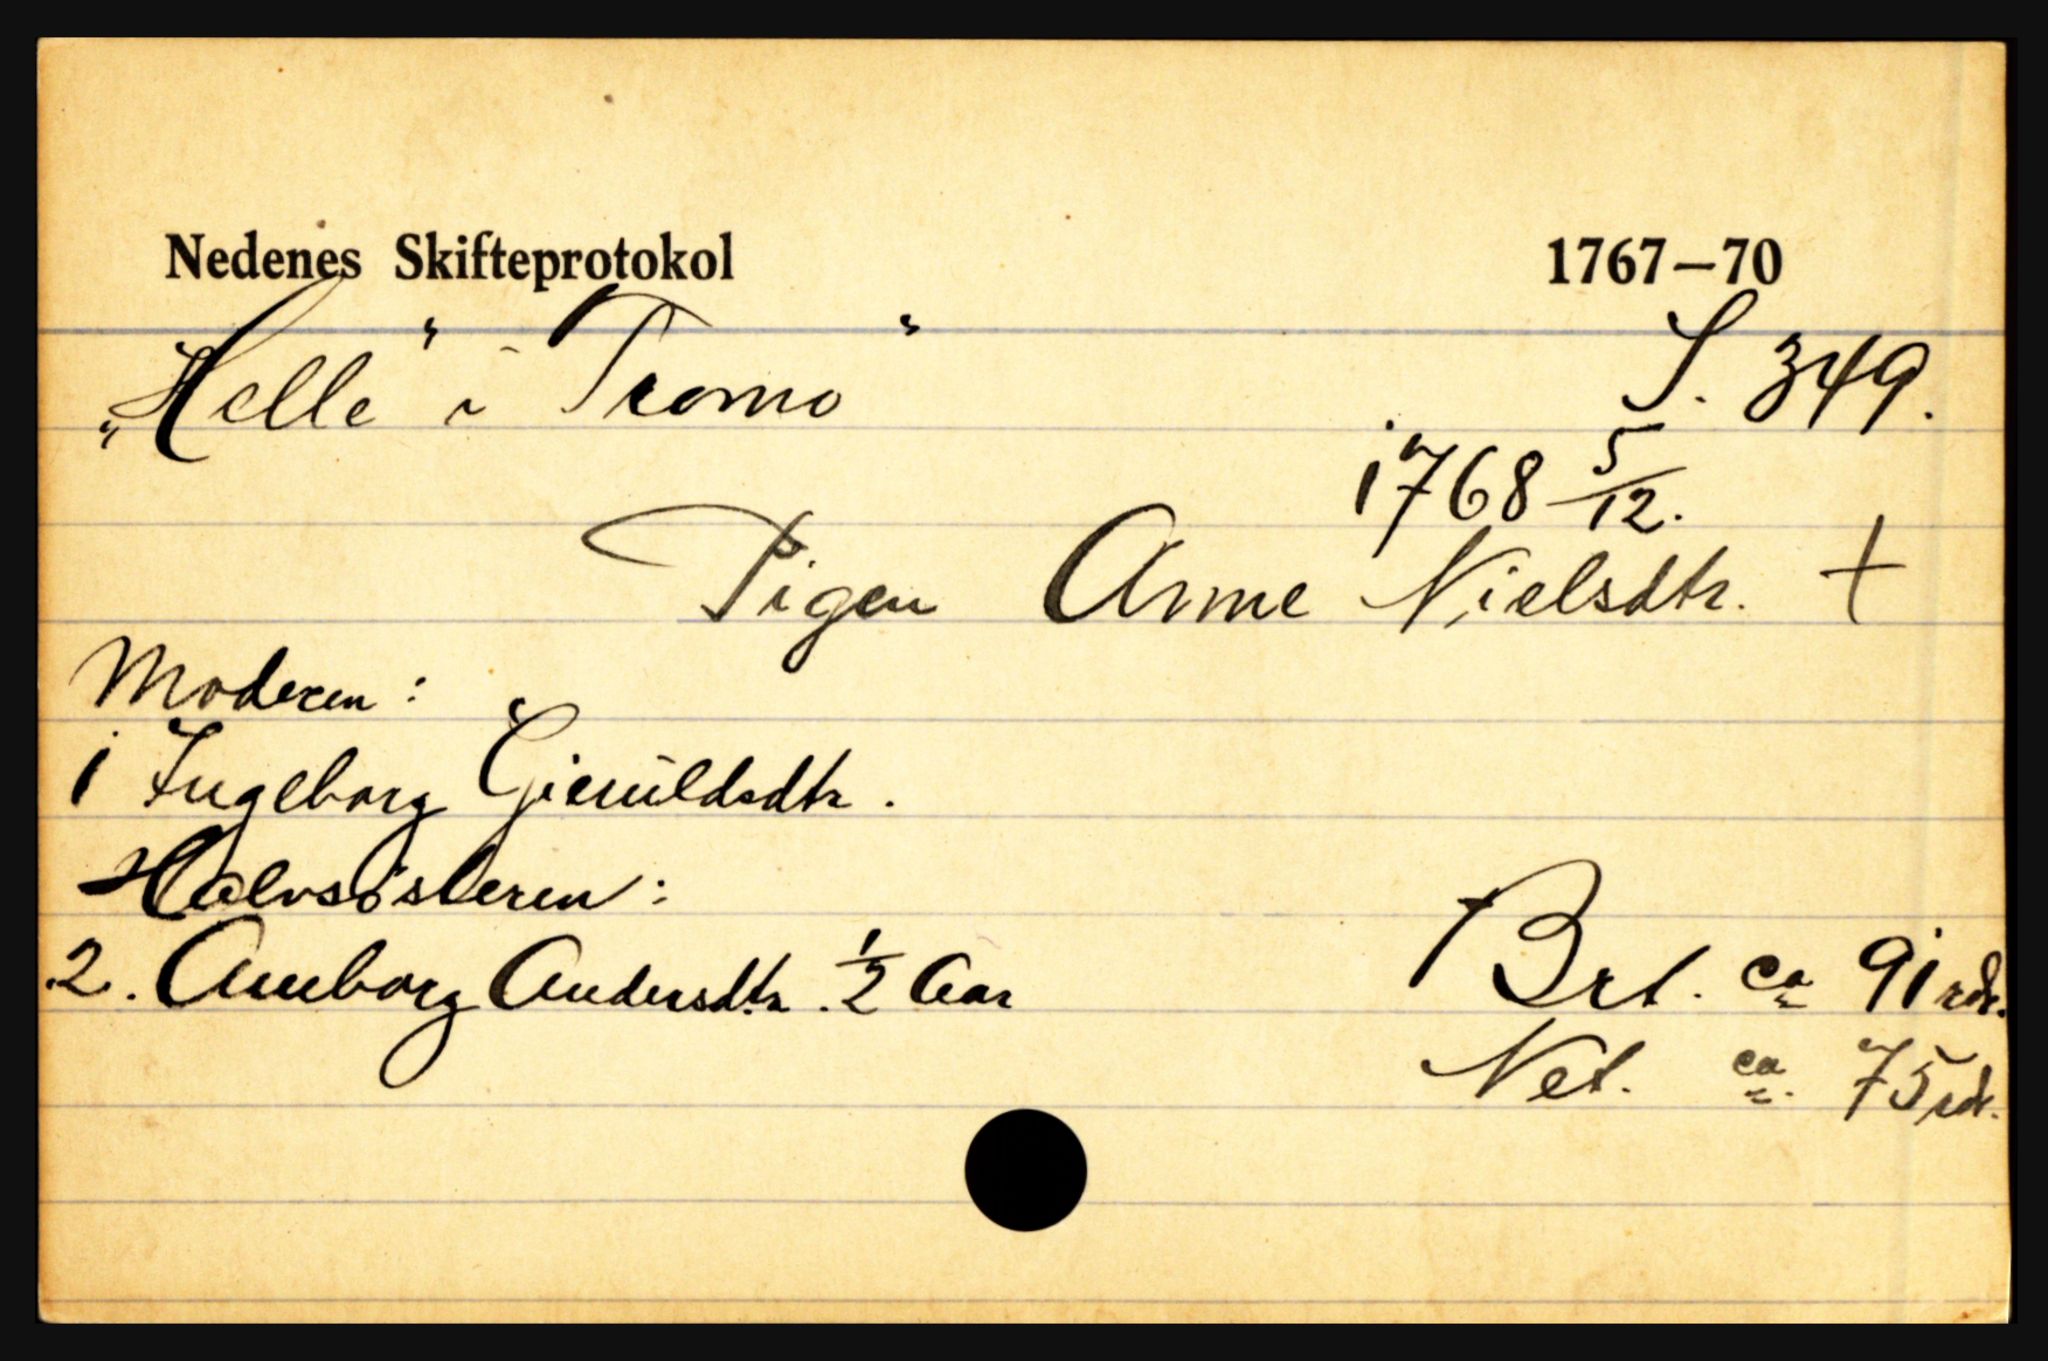 Nedenes Skifteprotokol 1767—70
„Helle" i Tromö S. 349.
1768 5/12.
Pigen Anne Nielsdtr. +
Moderen:
1 Ingeborg Gieruldsdtr.
Halvsösteren:
2. Anuborg Andersdtr. 1/2 Aar Brt. ca 91 rdr.
Net. ca. 75 rdr.